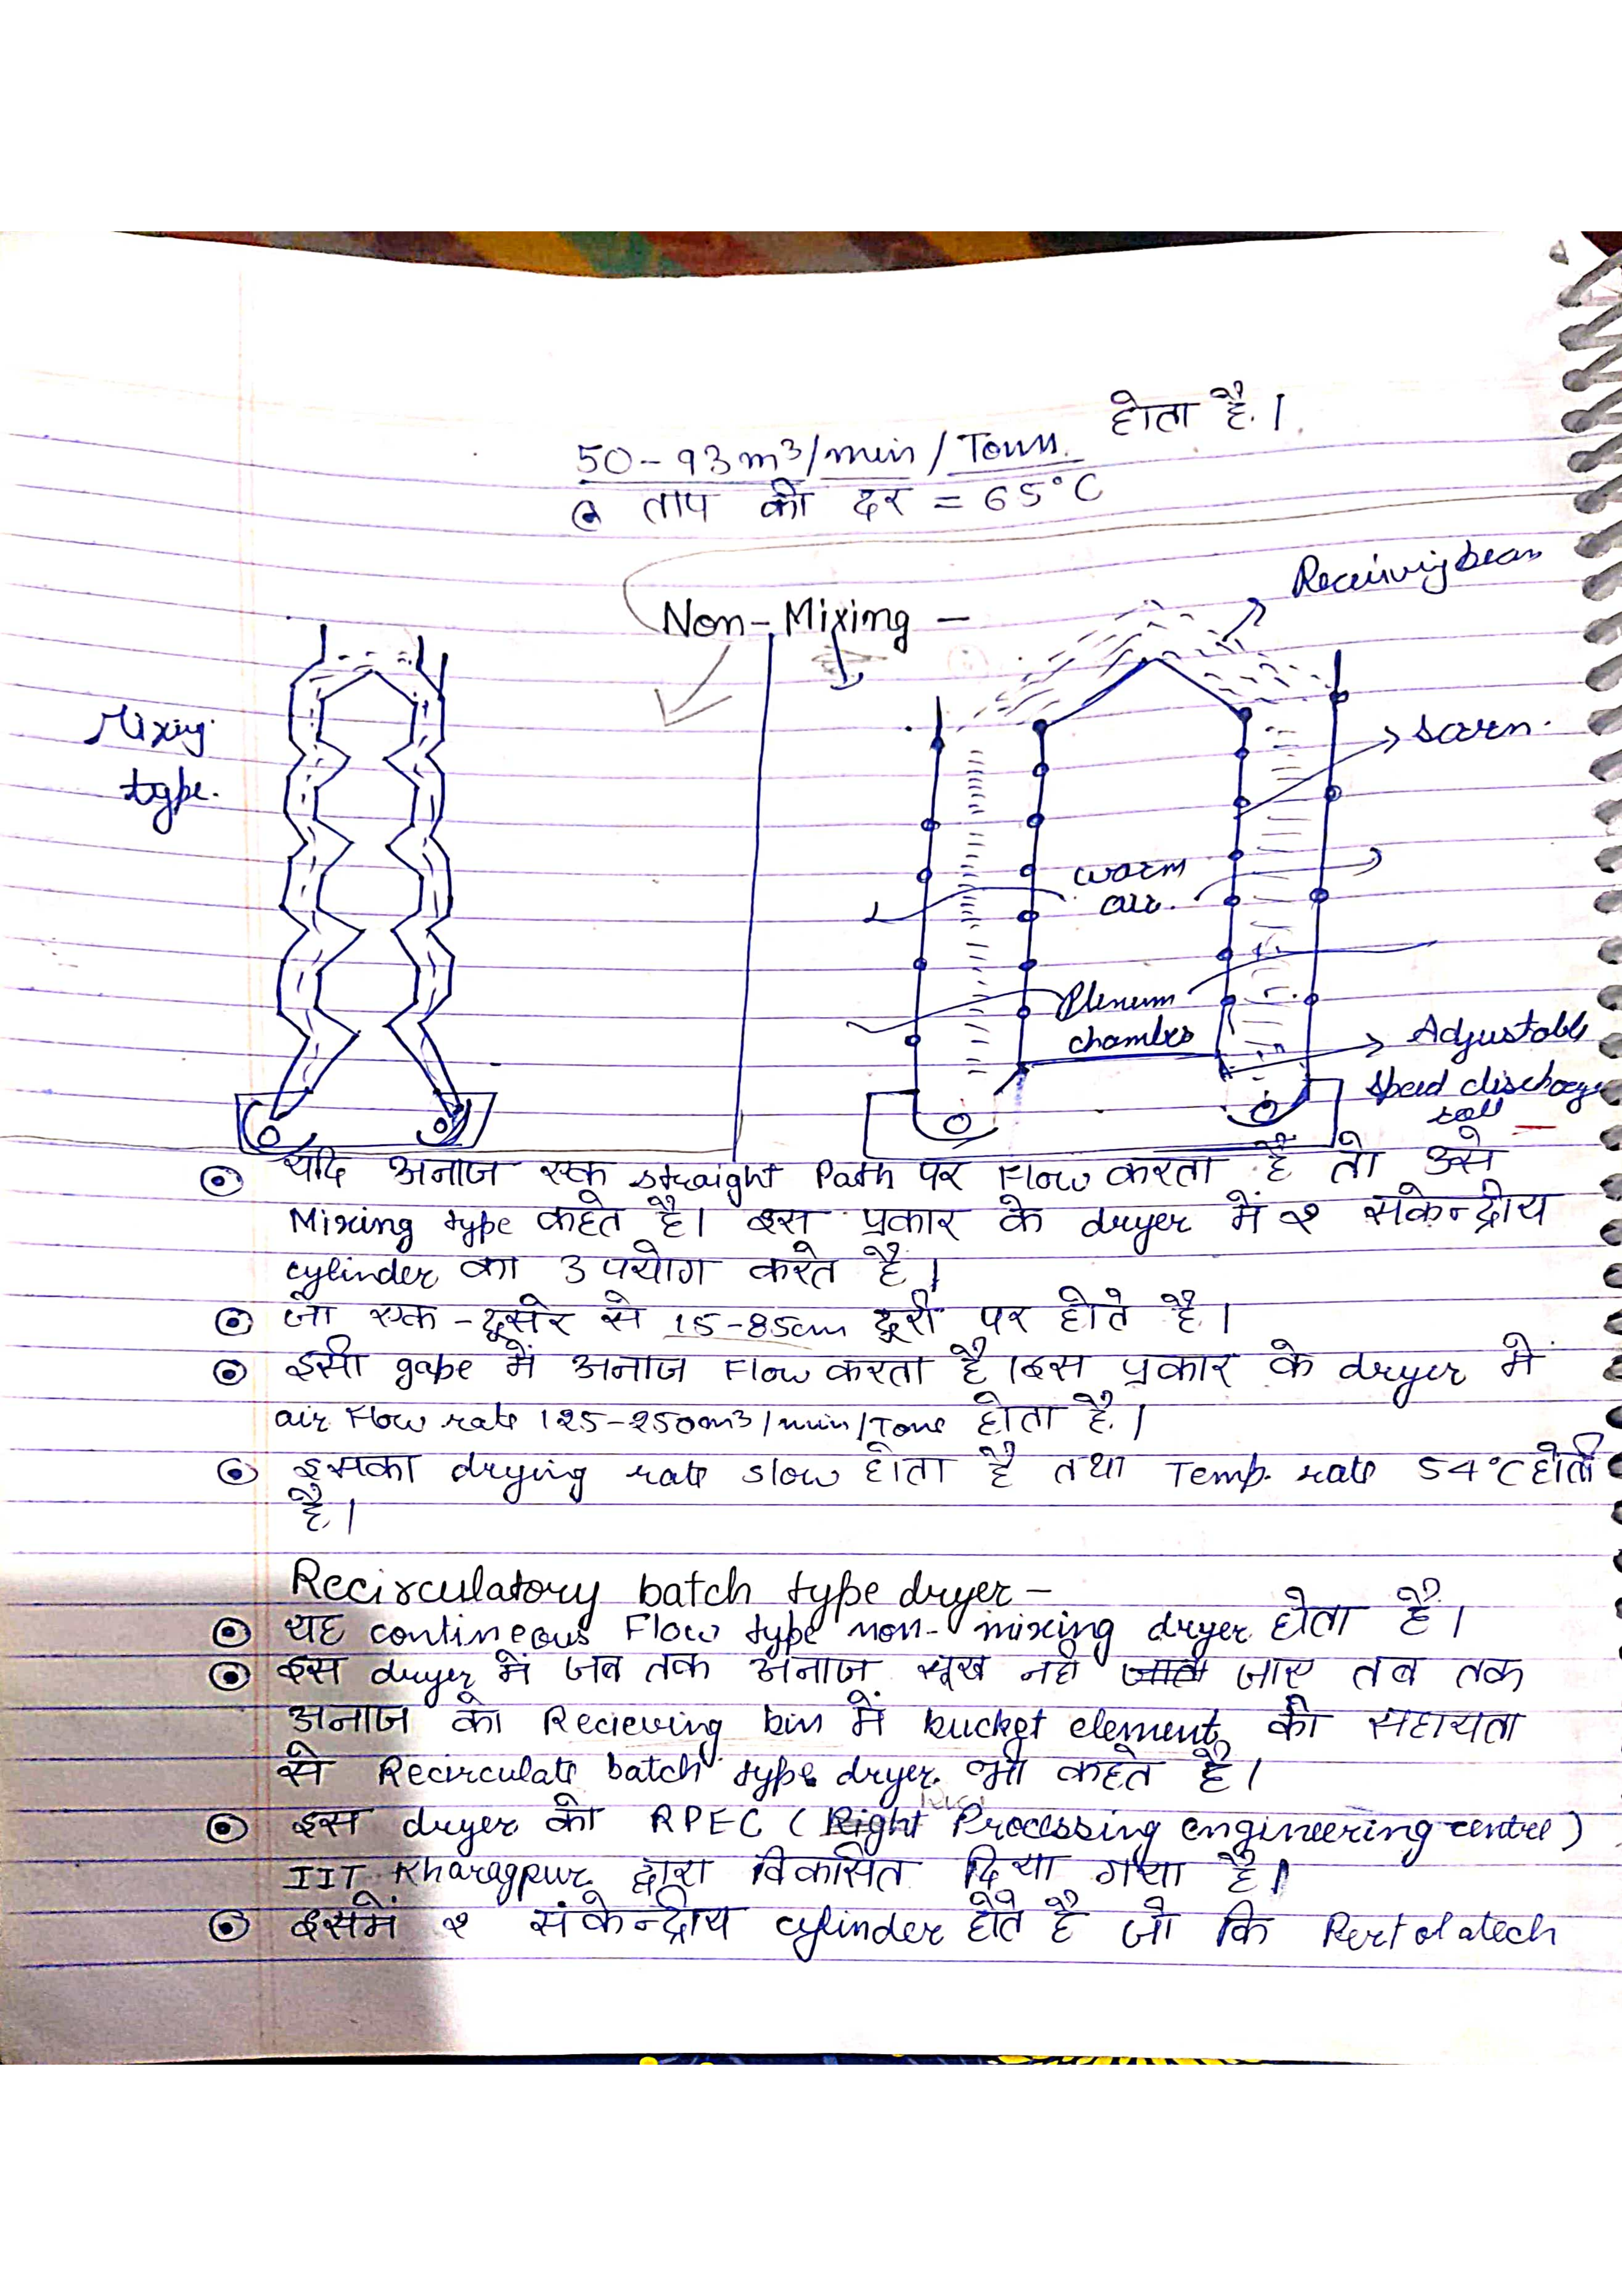 होता है।
50-93m³/min/Tonn.
@ ताप की दर = 65°C
Non-Mixing -
Receivigbean
Mixing
type.
scorn.
warm
air.
Plenum
chamber
Adjustable
speed discharge
roll
यदि अनाज एक straight Path पर Flow करता है तो उसे
Mixing type कहते है। इस प्रकार के dryer में २ संकेन्द्रीय
cylinder का उपयोग करते है।
जो एक-दूसरे से 15-85cm दूरी पर होते है।
इसी gape में अनाज Flow करता है। इस प्रकार के dryer में
air Flow rate 125-250m³/min/Tone होता है।
इसका drying rate slow होता है तथा Temp. rate 54°C होती
है।
Recirculatory batch type dryer -
यह contineous Flow type non-mixing dryer होता है।
इस dryer में जब तक अनाज सूख नही जाए तब तक
अनाज को Recieving bin में bucket element की सहायता
से Recirculate batch type dryer भी कहते है।
इस dryer को RPEC (Right Processing engineering centre)
IIT Kharagpur द्वारा विकसित दिया गया है।
इसमें २ संकेन्द्रीय cylinder होते है जो कि